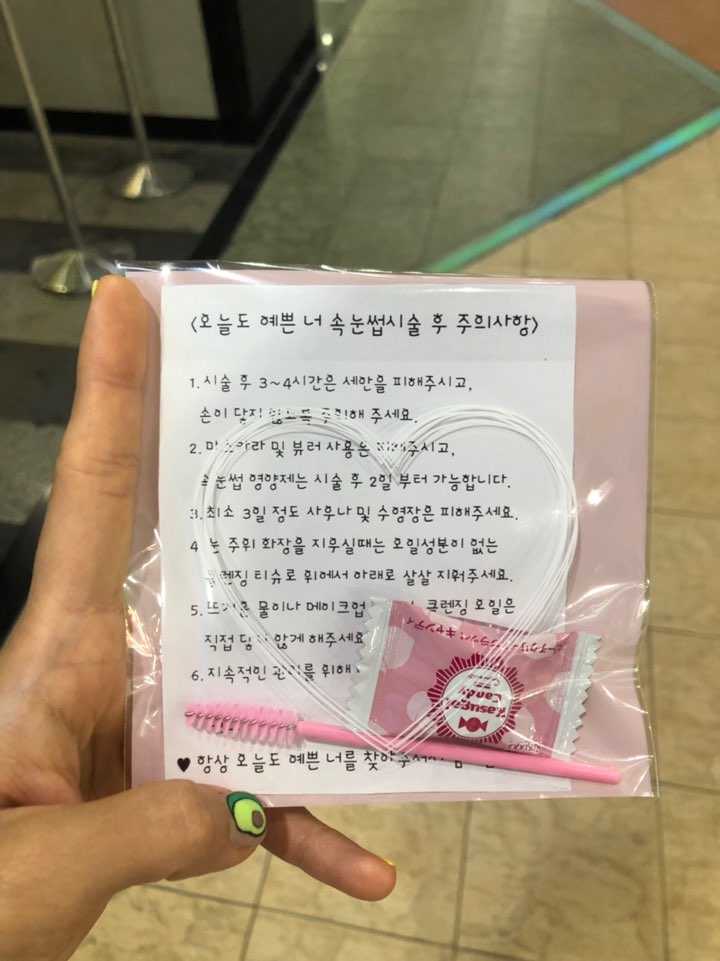 <오늘도 예쁜 너 속눈썹시술 후 주의사항>
1. 시술 후 3~4시간은 세안을 피해주시고,
손이 닿지 않도록 주의해 주세요.
2. 마스카라 및 뷰러 사용은 피해주시고,
속눈썹 영양제는 시술 후 2일 부터 가능합니다.
3. 최소 3일 정도 사우나 및 수영장은 피해주세요.
4 눈 주위 화장을 지우실때는 오일성분이 없는
클렌징 티슈로 위에서 아래로 살살 지워주세요.
5. 뜨거운 물이나 메이크업 크렌징 오일은
직접 닿지 않게 해주세요
6. 지속적인 관리를 위해
♥ 항상 오늘도 예쁜 너를 찾아주셔서
キャンディ
Kasugai
Candy